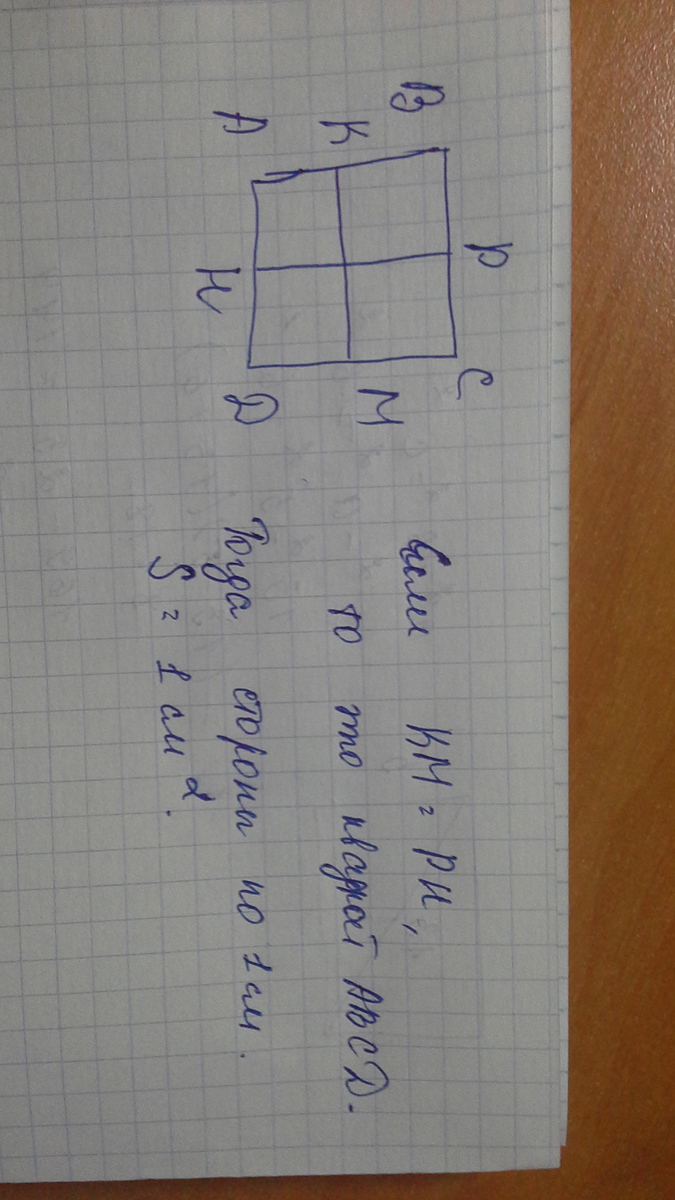 B P C
K M
A H D
Если KM = PH,
то это квадрат ABCD.
Тогда стороны по 1 см.
S = 1 см².